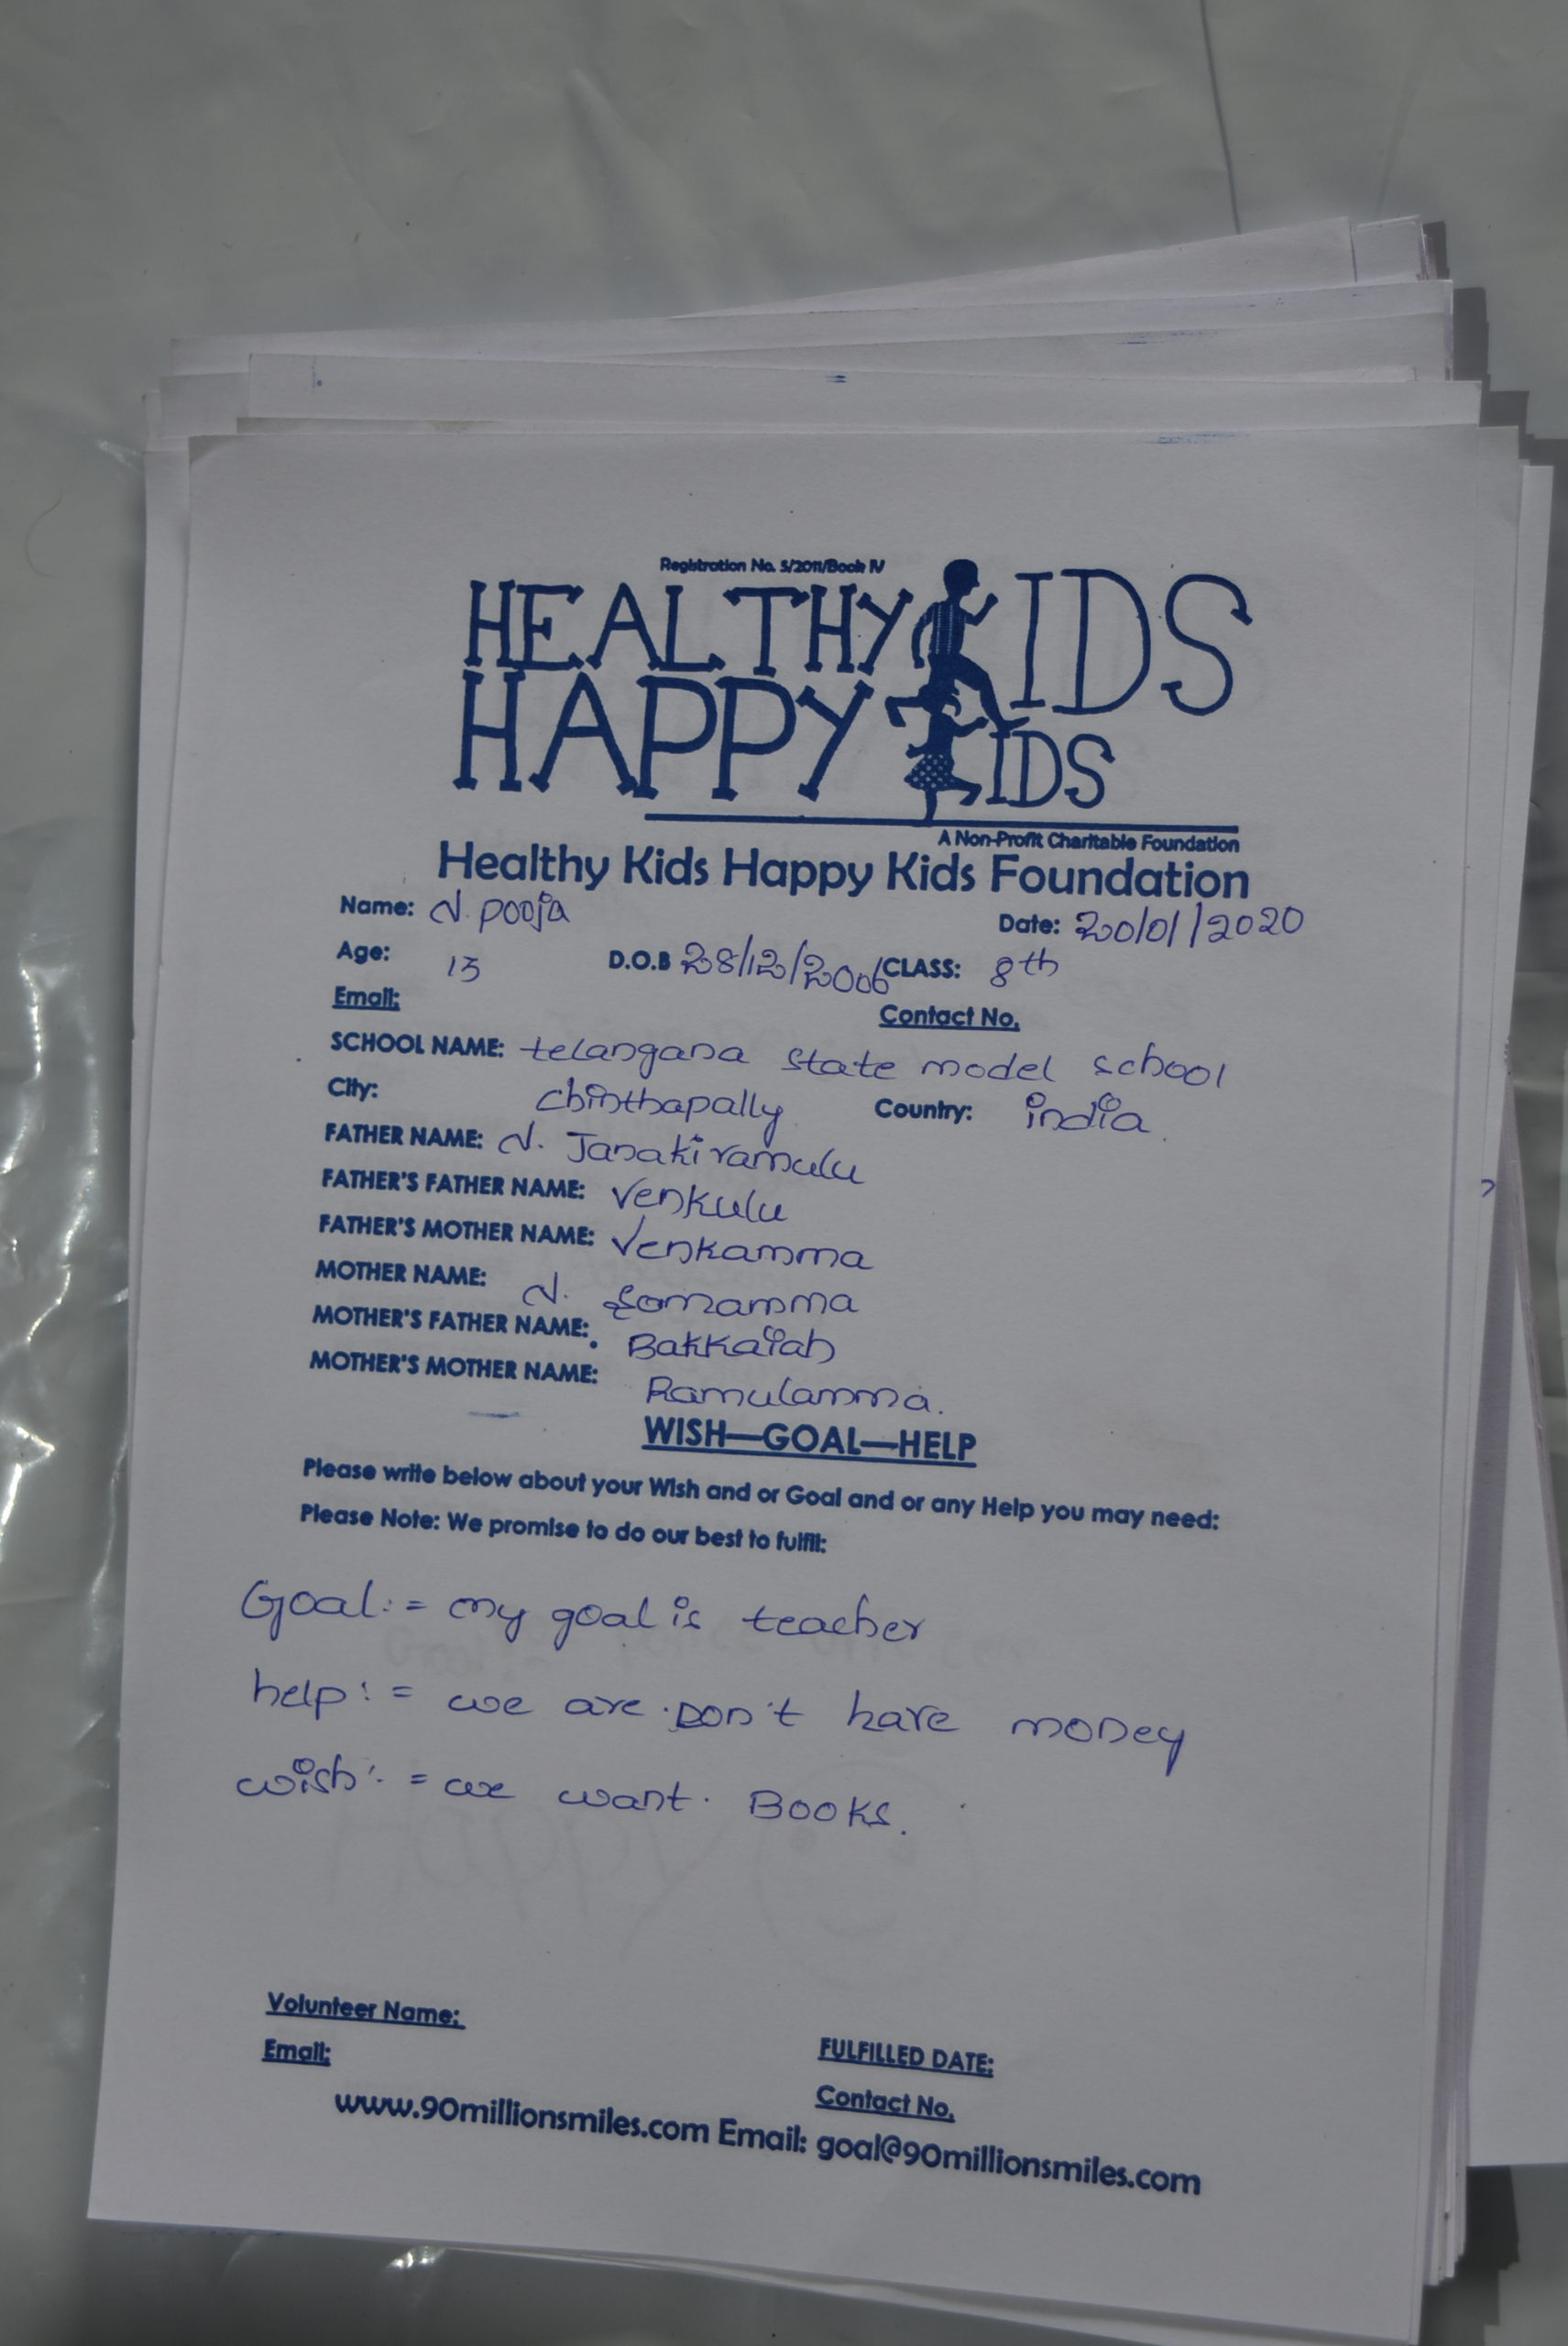 Registration No. 5/2011/Book IV
HEALTHY KIDS
HAPPY KIDS
A Non-Profit Charitable Foundation
Healthy Kids Happy Kids Foundation
Name: N. pooja Date: 20/01/2020
Age: 13 D.O.B 28/12/2006 CLASS: 8th
Email: Contact No.
SCHOOL NAME: telangana state model school
City: chinthapally Country: india.
FATHER NAME: N. Janakiramulu
FATHER'S FATHER NAME: Venkulu
FATHER'S MOTHER NAME: Venkamma
MOTHER NAME: N. Somamma
MOTHER'S FATHER NAME: Bakkaiah
MOTHER'S MOTHER NAME: Ramulamma.
WISH—GOAL—HELP
Please write below about your Wish and or Goal and or any Help you may need:
Please Note: We promise to do our best to fulfil:
Goal:= my goal is teacher
help:= we are Don't have money
wish:= we want Books.
Volunteer Name:
FULFILLED DATE:
Email: Contact No.
www.90millionsmiles.com Email: goal@90millionsmiles.com